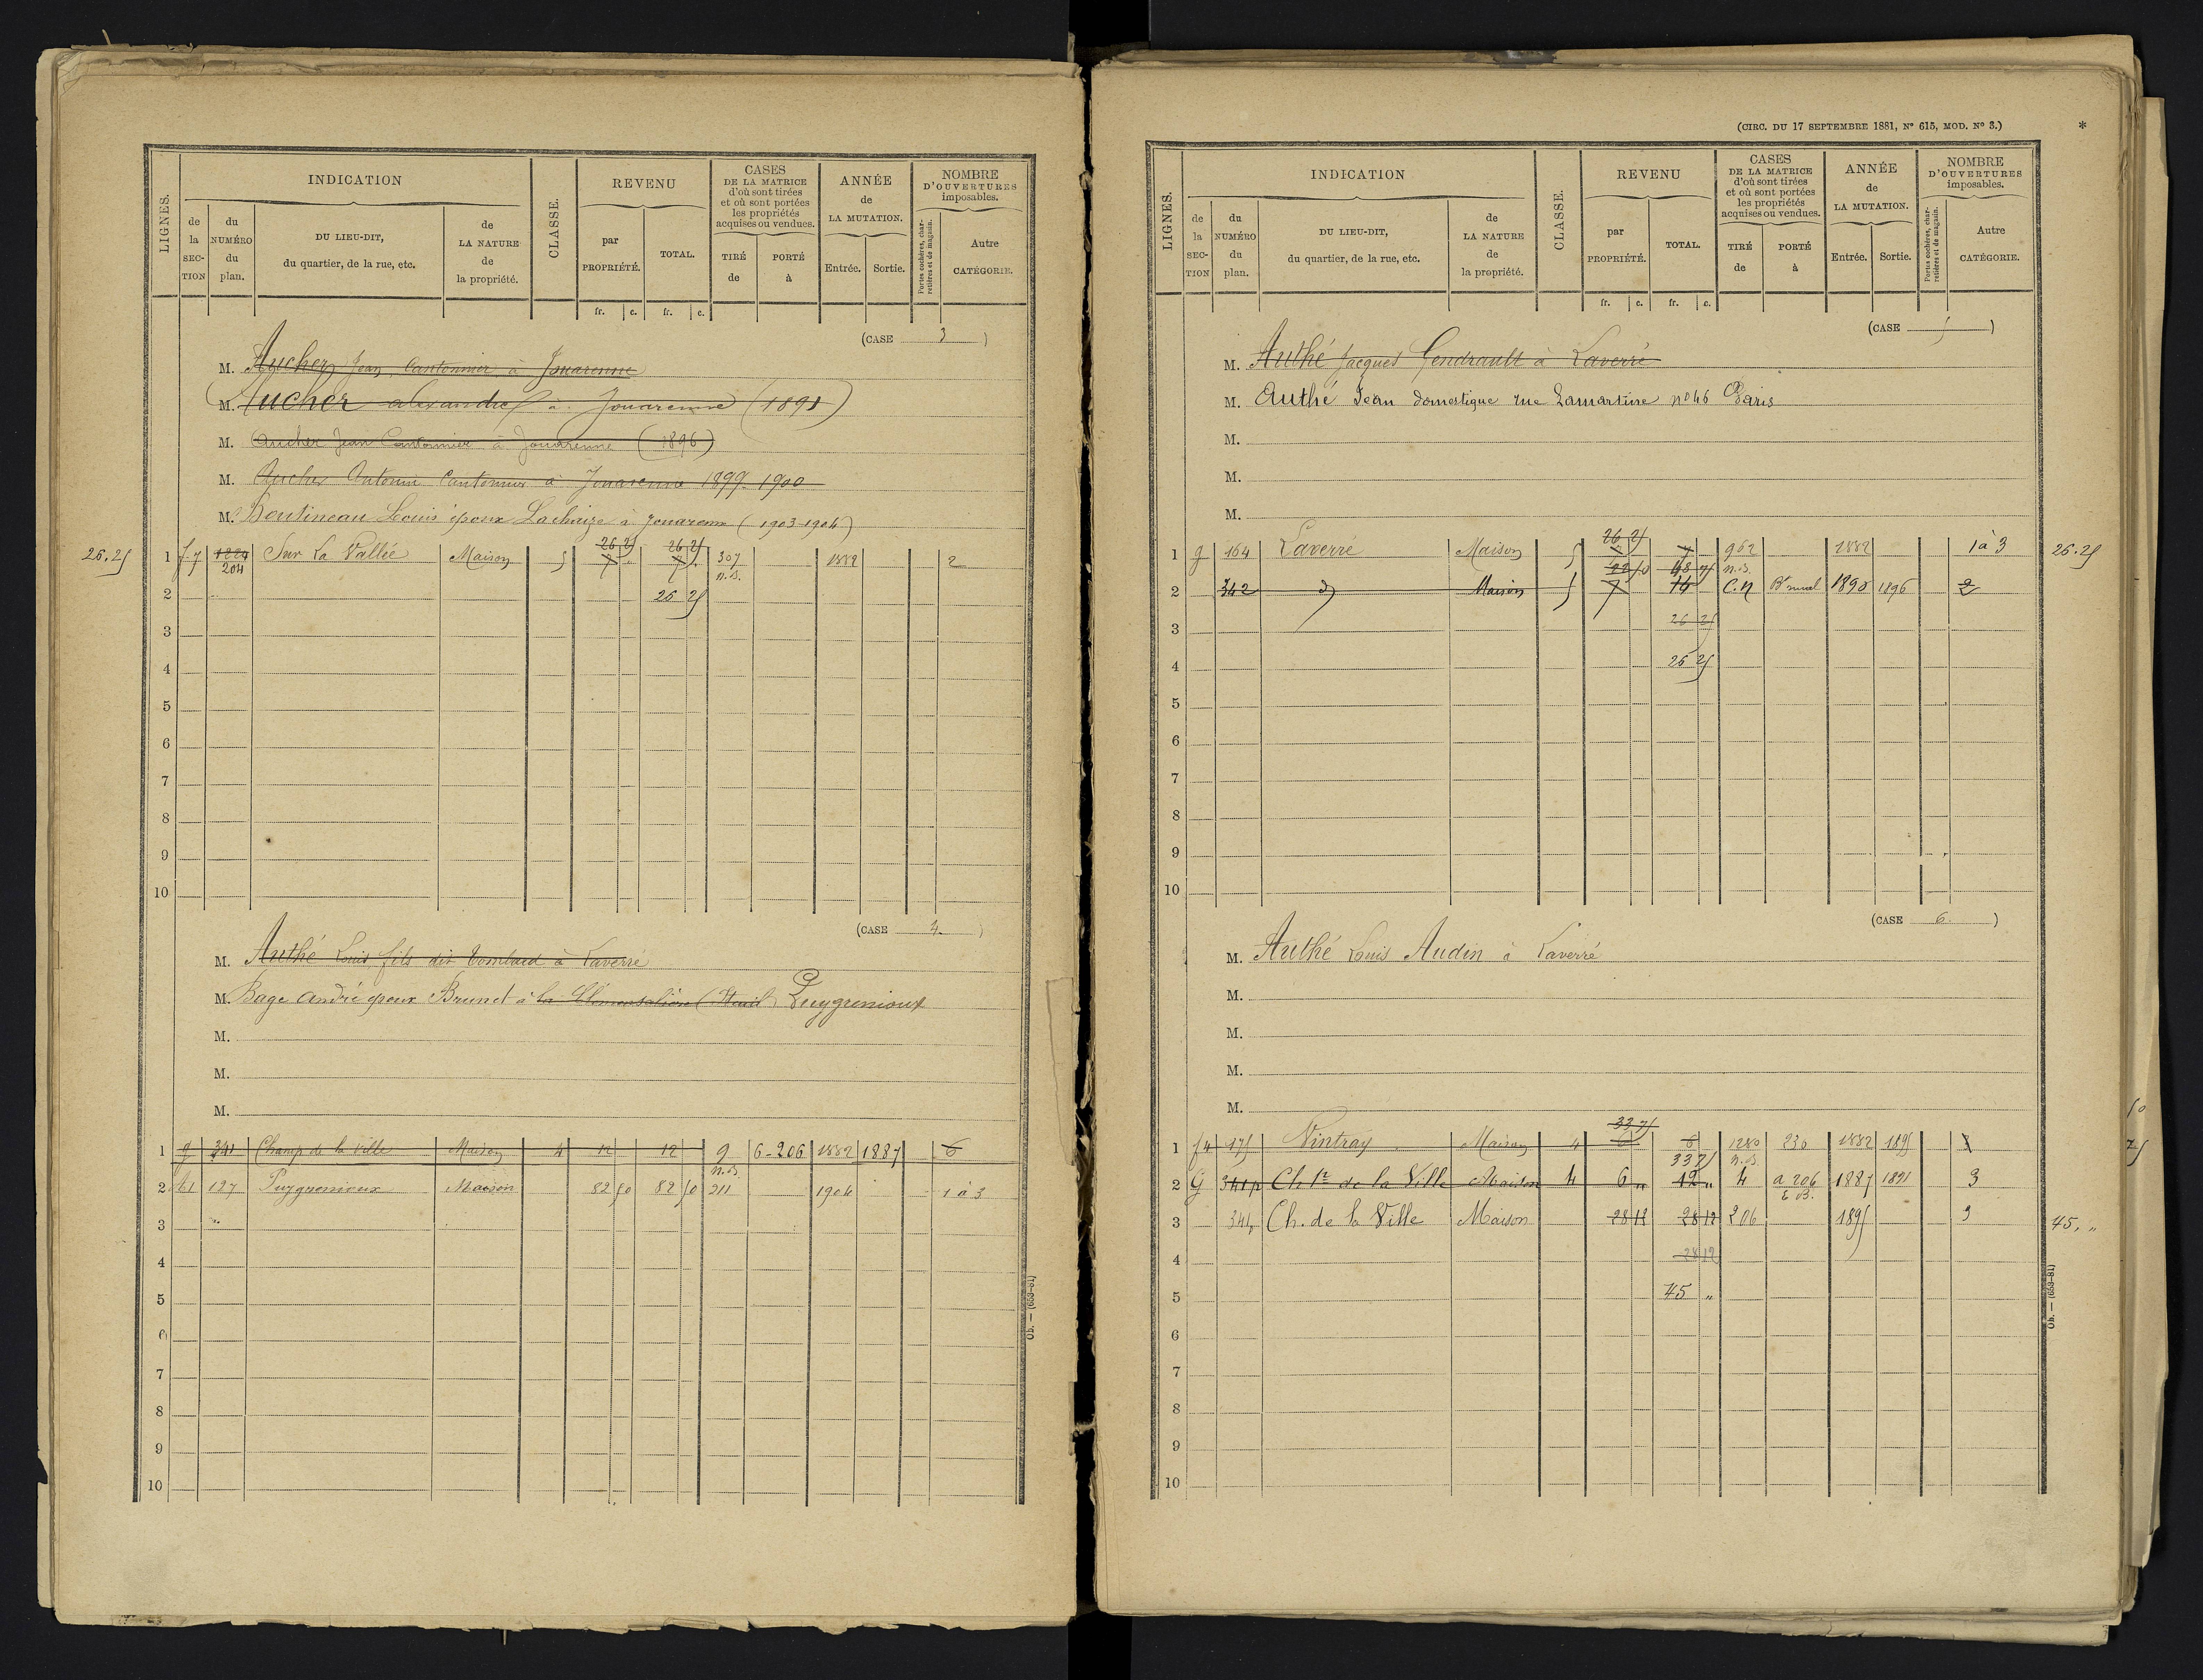 LIGNES.
INDICATION
de la SECTION
du NUMÉRO du plan.
DU LIEU-DIT, du quartier, de la rue, etc.
de LA NATURE de la propriété.
CLASSE.
REVENU
par PROPRIÉTÉ.
TOTAL.
CASES DE LA MATRICE d'où sont tirées et où sont portées les propriétés acquises ou vendues.
TIRÉ de
PORTÉ à
ANNÉE de LA MUTATION.
Entrée.
Sortie.
NOMBRE D'OUVERTURES imposables.
Portes cochères, charretières et de magasin.
Autre CATÉGORIE.
fr. c. fr. c.
(CASE 3 )
M. Aucher Jean Cantonnier à Jouarenne
M. Aucher alexandre à Jouarenne (1891)
M. Aucher Jean Cantonnier à Jouarenne (1896)
M. Aucher Antonin Cantonnier à Jouarenne 1899-1900
M. Boutineau Louis époux Lachaize à Jouarenne (1903-1904)
26 25 26 25
26.25 1 1229 Sur La Vallée Maison 5 7 7 307 1882 2
204 n.B.
2 26 25
3
4
5
6
7
8
9
10
(CASE 4. )
M. Authé Louis fils dit à Laverré
M. Bage André époux Brunet à la Puygrenioux
M.
M.
M.
1 g 341 Champ de la ville Maison 4 12 12 9 6-206 1882 1887 6
n.B.
2 127 Puygrenioux Maison 82 50 82 50 211 1904 1 à 3
3
4
5
6
7
8
9
10
Ob. — (653-81)
(CIRC. DU 17 SEPTEMBRE 1881, N° 615, MOD. N° 3.) *
LIGNES.
INDICATION
de la SECTION
du NUMÉRO du plan.
DU LIEU-DIT, du quartier, de la rue, etc.
de LA NATURE de la propriété.
CLASSE.
REVENU
par PROPRIÉTÉ.
TOTAL.
CASES DE LA MATRICE d'où sont tirées et où sont portées les propriétés acquises ou vendues.
TIRÉ de
PORTÉ à
ANNÉE de LA MUTATION.
Entrée.
Sortie.
NOMBRE D'OUVERTURES imposables.
Portes cochères, charretières et de magasin.
Autre CATÉGORIE.
fr. c. fr. c.
(CASE 5 )
M. Authé Jacques Gendrault à Laverré
M. Authé Jean domestique rue Lamartine n° 46 Paris
M.
M.
M.
26 25
1 g 164 Laverré Maison 5 7 962 1882 1 à 3 26.25
n.B.
2 342 d Maison 5 7 14 C.N Bt rural 1890 1896 2
3 26 25
4 26 25
5
6
7
8
9
10
(CASE 6. )
M. Authé Louis Audin à Laverré
M.
M.
M.
M.
33 75
1 f4 175 Vintray Maison 4 6 6 1280 230 1882 1895
33 75 n.B.
2 G 341p Ch.t de la Ville Maison 4 6 " 12 " 4 a 206 1887 1891 3
3 341p Ch. de la Ville Maison 28 12 28 12 206 1895 3 45, "
4 28 12
5 45 "
6
7
8
9
10
Ob. — (653-81)
50
75